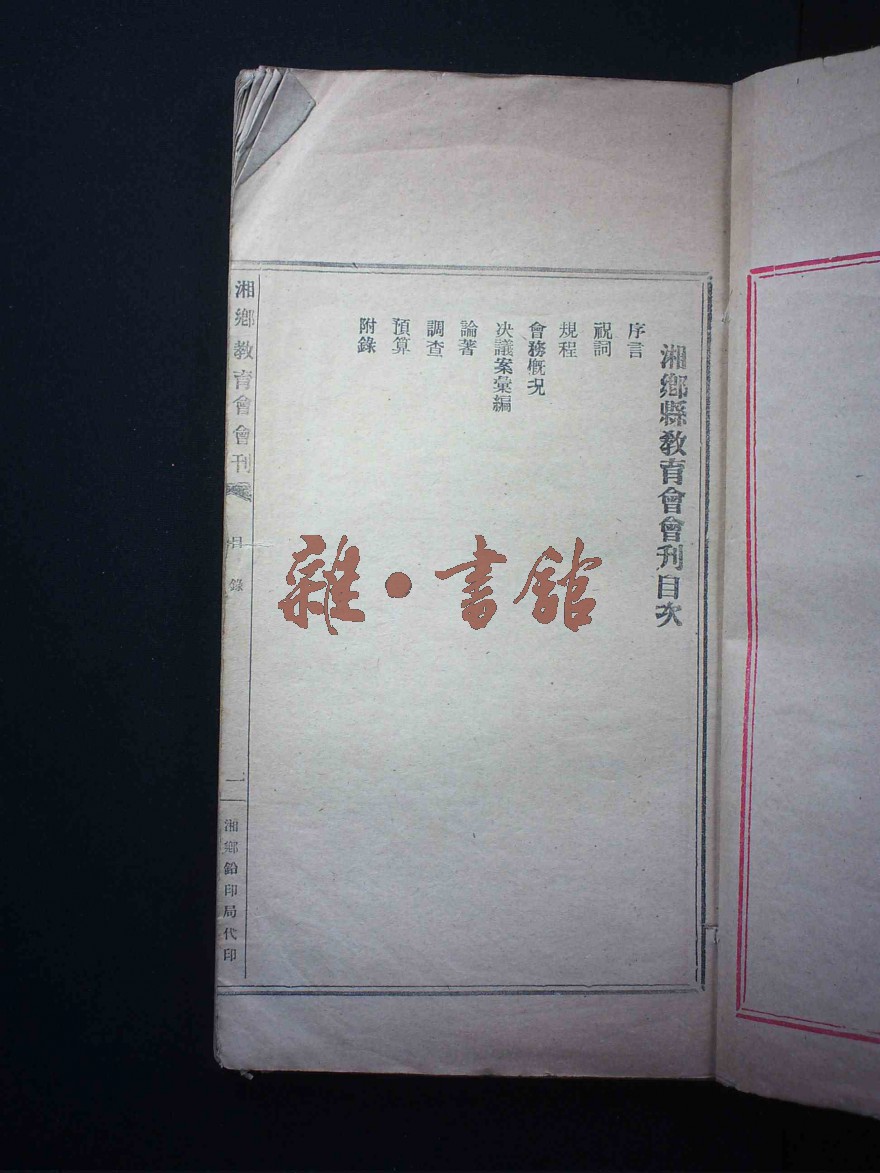 湘鄉縣教育會會刊目次
序言
祝詞
規程
會務概况
决議案彙編
論著
調查
預算
附錄
湘鄉教育會會刊
目錄
一
湘鄉鉛印局代印
雜·書館